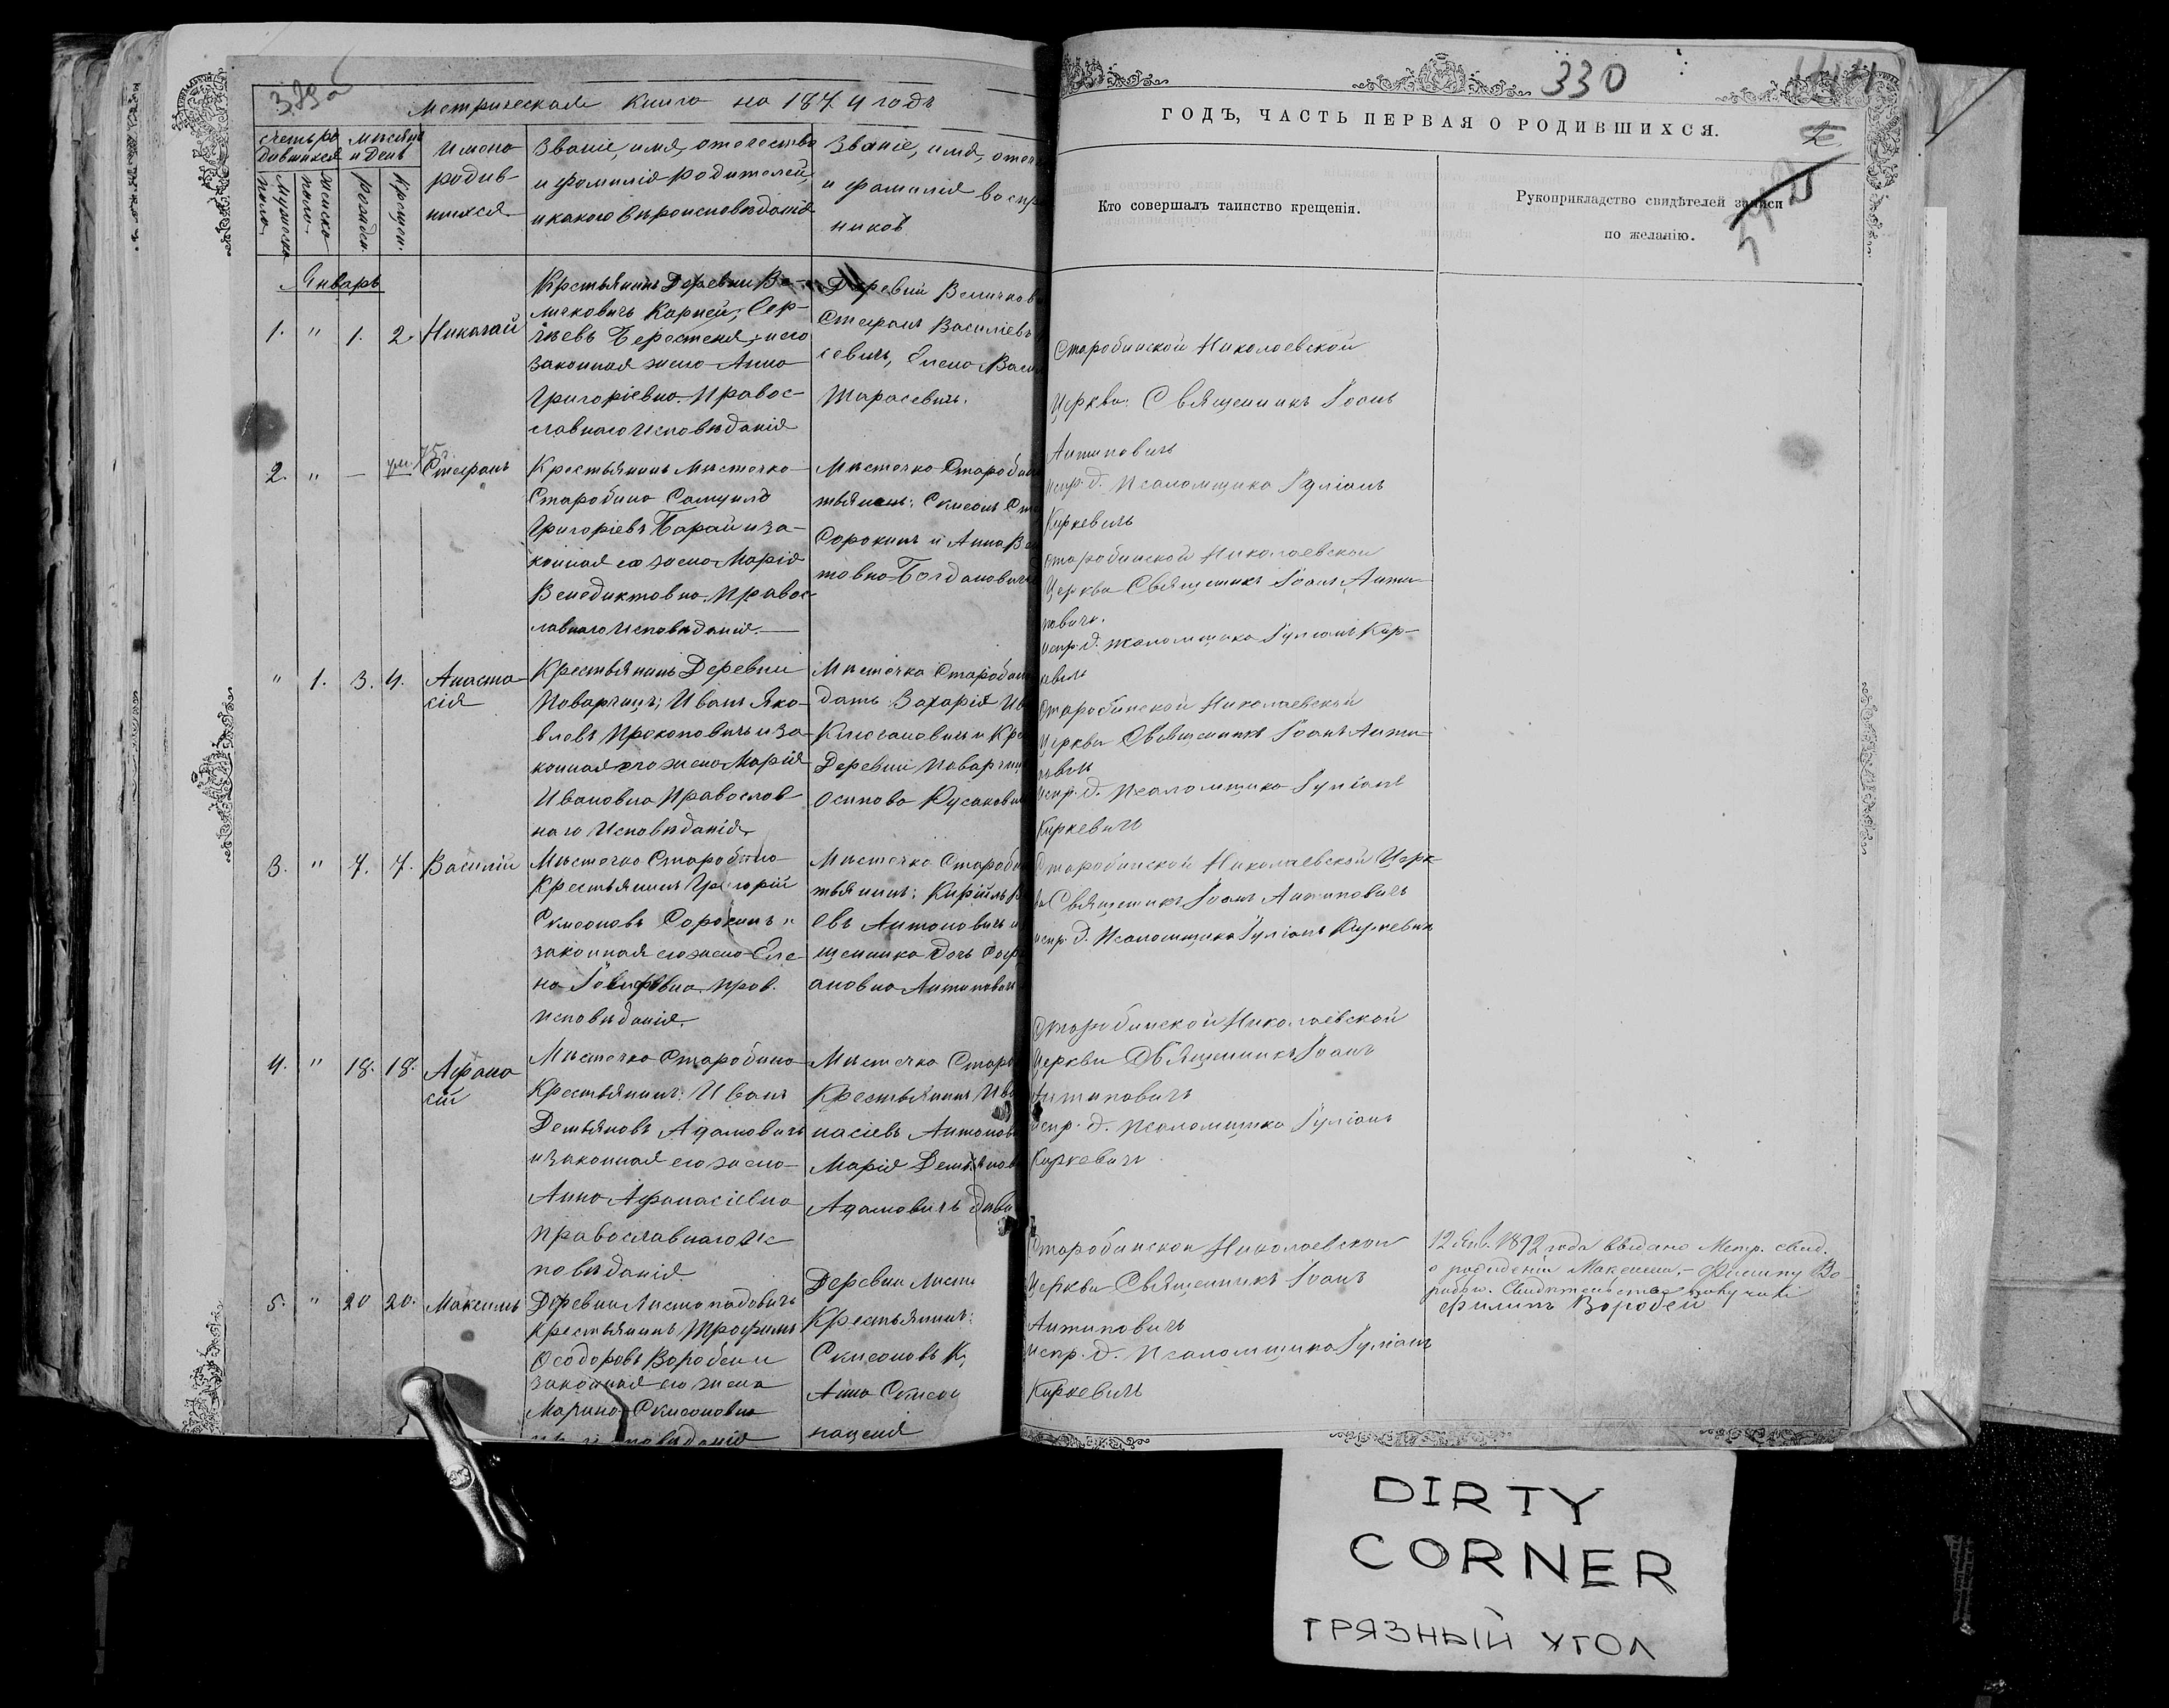 329а
Метрическая Книга на 1874 годъ
Имена
родив-
шихся
Званіе, имя, отечество
и фамилія родителей,
и какого вѣроисповѣданія
Званіе, имя, отеч
и фамилія воспр
никовъ
Мужеска
пола
женска
пола
рожден.
Крещен.
Январь
1. " 1. 2. Николай
Крестьянинъ Деревни Ве-
личковичъ Корней, Сер-
гѣевъ Берестеня, и его
законная жена Анна
Григоріевна. Правос-
лавнаго Исповѣданія
Деревни Величков
Стефанъ Василіевъ
севичъ, Елена Васил
Тарасевичъ.
2. " — Стефанъ
Крестьянинъ Мѣстечка
Старобина Самуилъ
Григоріевъ Барай и за-
конная его жена Марія
Венедиктовна. Правос-
лавнаго Исповѣданія. —
Мѣстечка Старобин
тьянинъ: Симеонъ Сте
Сорокинъ и Анна В
товна Богдановичъ
" 1. 3. 4. Анаста
сія
Крестьянинъ Деревни
Поварчицъ; Иванъ Яко-
влевъ Прокоповичъ и за-
конная его жена Марія
Ивановна Православ
наго Исповѣданія
Мѣстечка Старобин
датъ Захарія Ив
Деревни Поварчиц
Осипова Русакович
3. " 7. 7. Василій
Мѣстечка Старобина
Крестьянинъ Григорій
Симеоновъ Сорокинъ и
законная его жена Еле
на Іосифовна. Прав.
Исповѣданія.
Мѣстечка Староби
тьянинъ: Кирійлъ В
евъ Антоновичъ и
щенника дочь Соф
ановна Антипович
4. " 18. 18. Афана
сій
Мѣстечка Старобина
Крестьянинъ: Иванъ
Демьяновъ Адамовичъ
и законная его жена
Анна Афанасіевна
Православнаго Ис
повѣданія
Мѣстечка Старо
Крестьянинъ Ива
насіевъ Антонов
Марія Демьянов
Адамовичъ дѣви
5. " 20 20. Максимъ
Деревни Листопадовичъ
Крестьянинъ Трофимъ
Ѳеодоровъ Воробей и
законная его жена
Марина Симеоновна
Деревни Листо
Крестьянинъ:
Симеоновъ К
Анна Симео
наценя
330
ГОДЪ, ЧАСТЬ ПЕРВАЯ О РОДИВШИХСЯ.
Кто совершалъ таинство крещенія.
Рукоприкладство свидѣтелей записи
по желанію.
Старобинской Николаевской
Церкви: Священникъ Іоанъ
Антиповичъ
испр. д. Псаломщика Іуліанъ
Киркевичъ
Старобинской Николаевской
Церкви Священникъ Іоанъ Анти-
повичъ.
испр. д. Псаломщика Іуліанъ Кир-
кевичъ
Старобинской Николаевской
Церкви Священникъ Іоанъ Анти-
повичъ
испр. д. Псаломщика Іуліанъ
Киркевичъ
Старобинской Николаевской Церк
ви Священникъ Іоанъ Антиповичъ
испр. д. Псаломщика Іуліанъ Киркевичъ
Старобинской Николаевской
Церкви Священникъ Іоанъ
Антиповичъ
испр. д. Псаломщика Іуліанъ
Киркевичъ
Старобинской Николаевской
Церкви Священникъ Іоанъ
Антиповичъ
испр. д. Псаломщика Іуліанъ
Киркевичъ
12 Янв. 1892 года выдано Метр. свид.
о рожденіи Максима, – Филипу Во-
робью. Свидѣтельство получилъ
Филипъ Воробей
DIRTY
CORNER
ГРЯЗНЫЙ УГОЛ